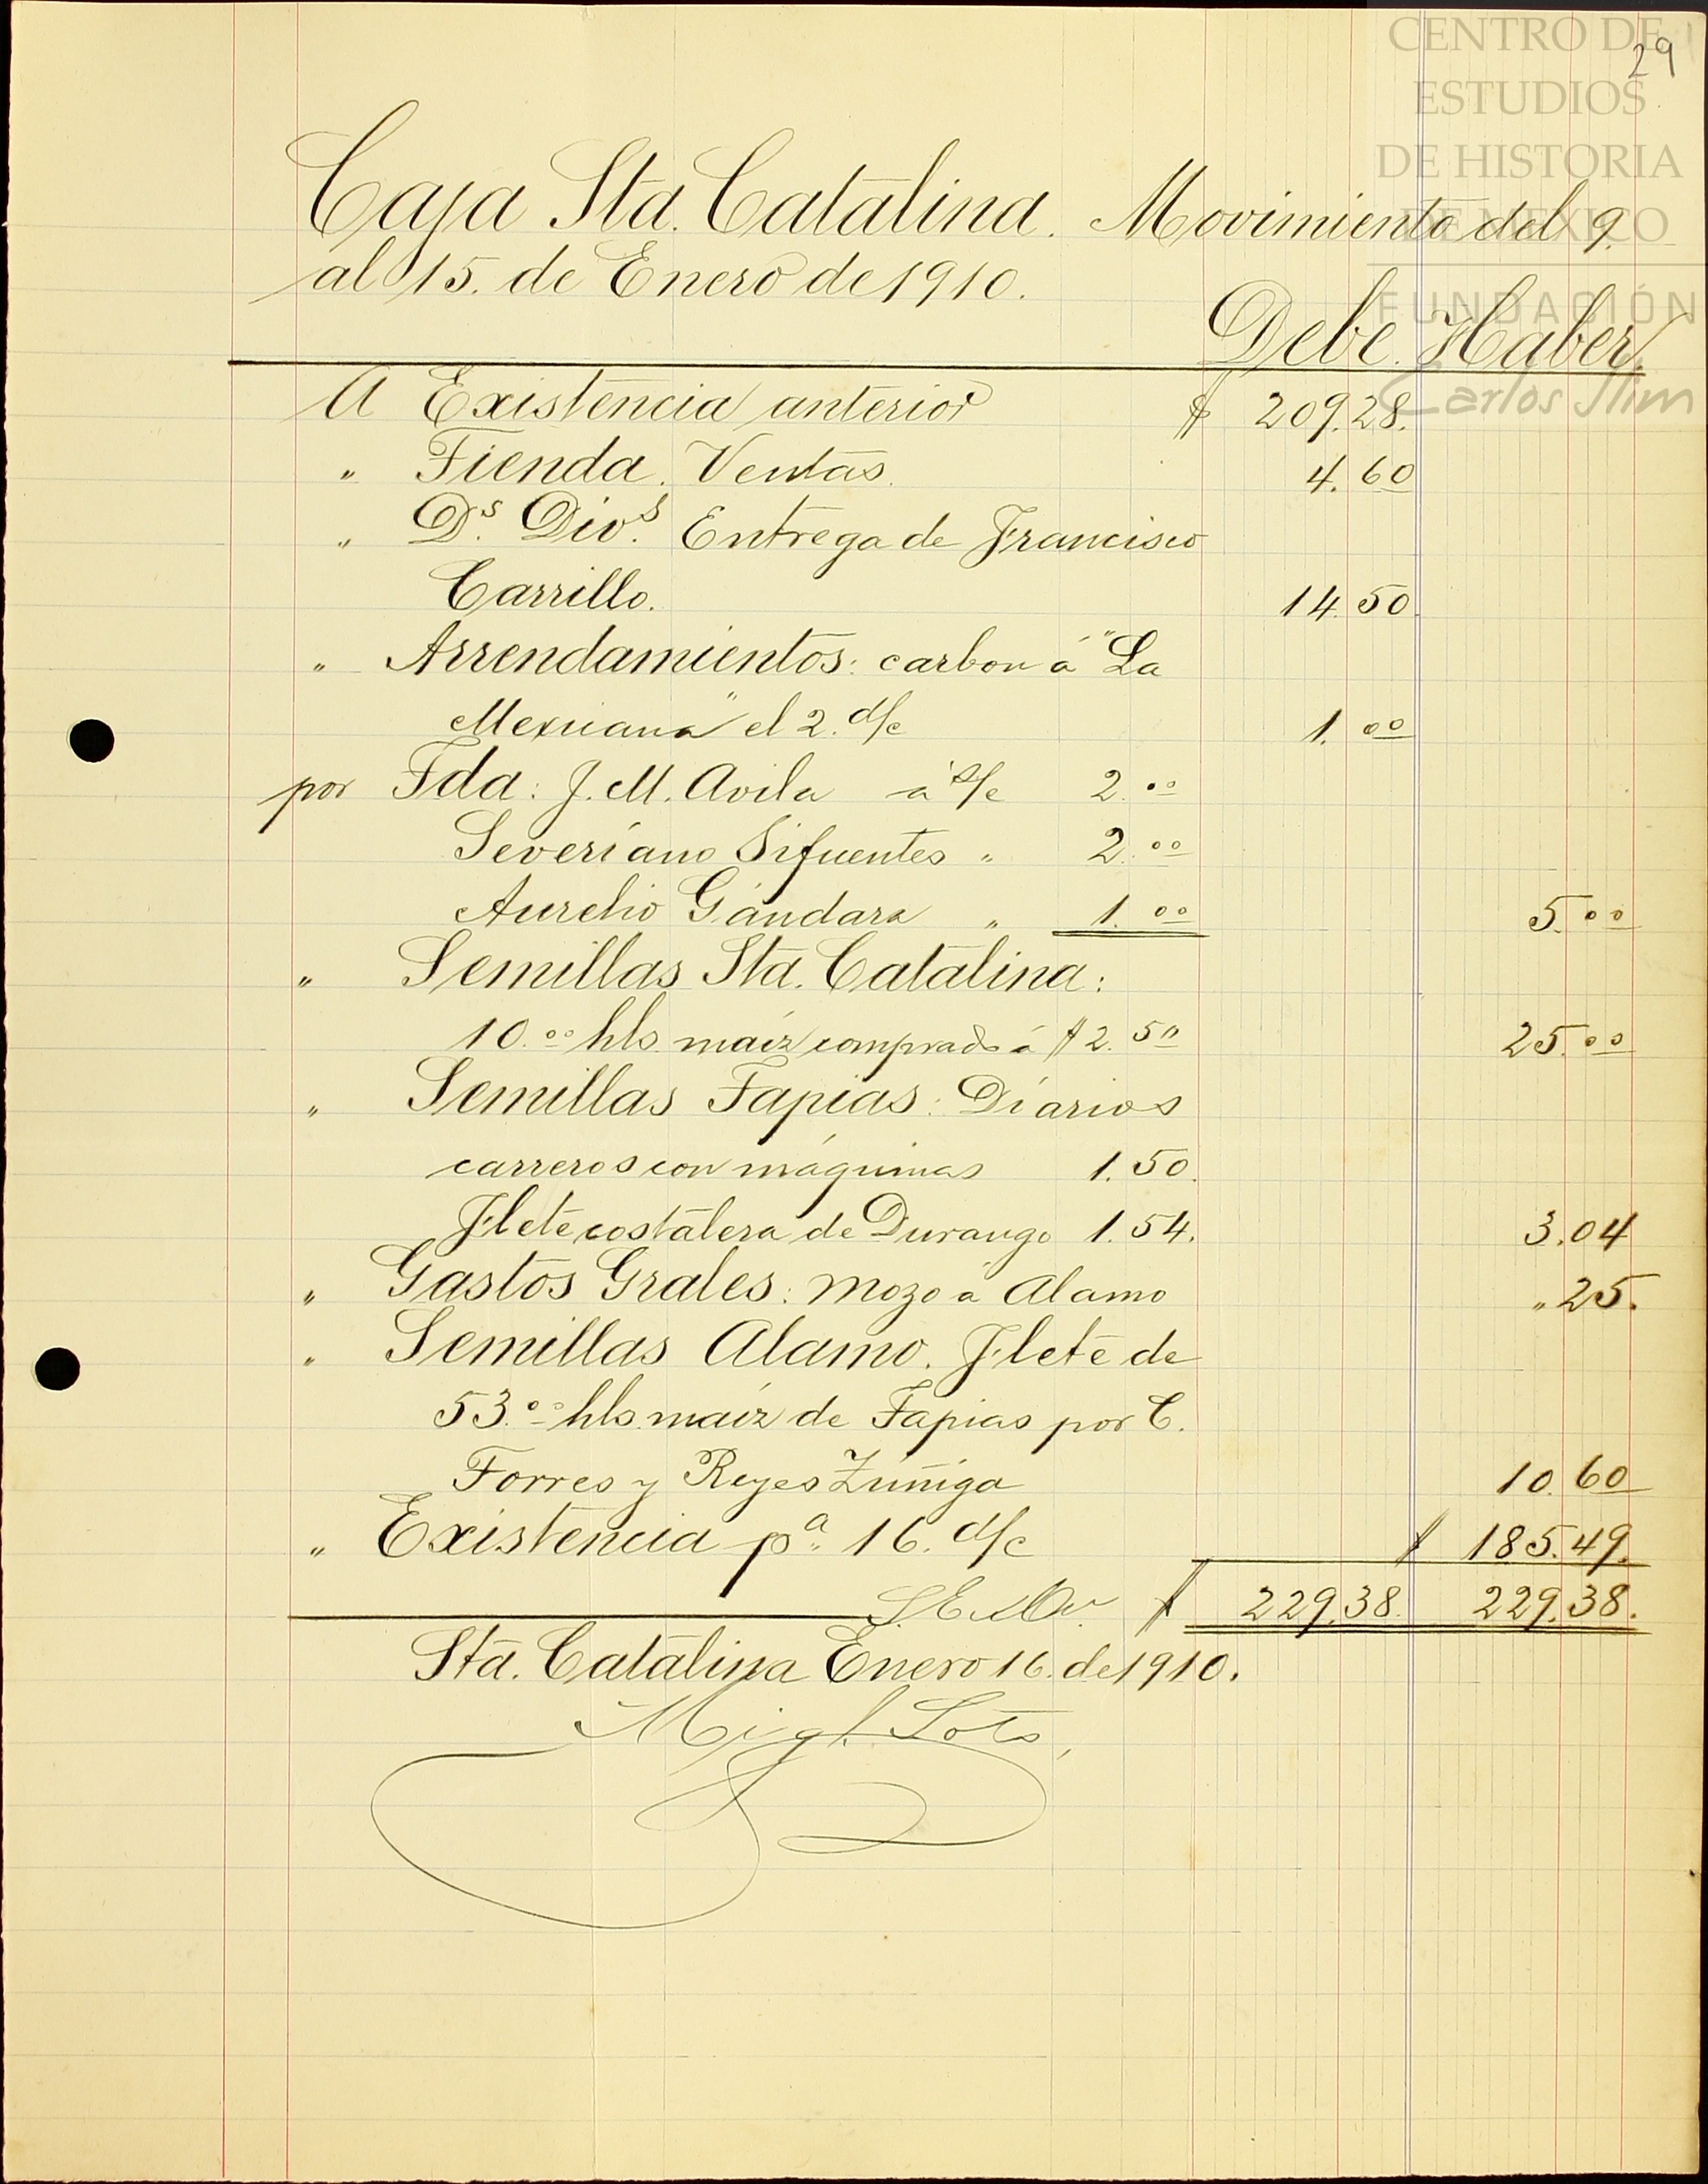 CENTRO DE
29
ESTUDIOS
DE HISTORIA
DE MEXICO
FUNDACIÓN
Carlos Slim
Caja Sta. Catalina. Movimiento del 9.
al 15. de Enero de 1910.
Debe. Haber.
A Existencia anterior $ 209.28.
" Tienda. Ventas. 4.60
" Ds. Divs. Entrega de Francisco
Carrillo. 14.50
" Arrendamientos: carbon á "La
Mexicana" el 2. d/c 1.00
por Fda: J. M. Avila á s/c 2.00
Severiano Sifuentes " 2.00
Aurelio Gándara " 1.00 5.00
" Semillas Sta. Catalina:
10.00 hls. maíz comprado á $2.50 25.00
" Semillas Tapias: Diarios
carreros con máquinas 1.50.
Flete costalera de Durango 1.54. 3.04
" Gastos Grales: mozo á Alamo " 25.
" Semillas Alamo. Flete de
53.00 hls. maíz de Tapias por C.
Torres y Reyes Zúñiga 10.60
" Existencia pa. 16. d/c $ 185.49.
S. E. u O. $ 229.38. 229.38.
Sta. Catalina Enero 16. de 1910.
Migl. Soto,